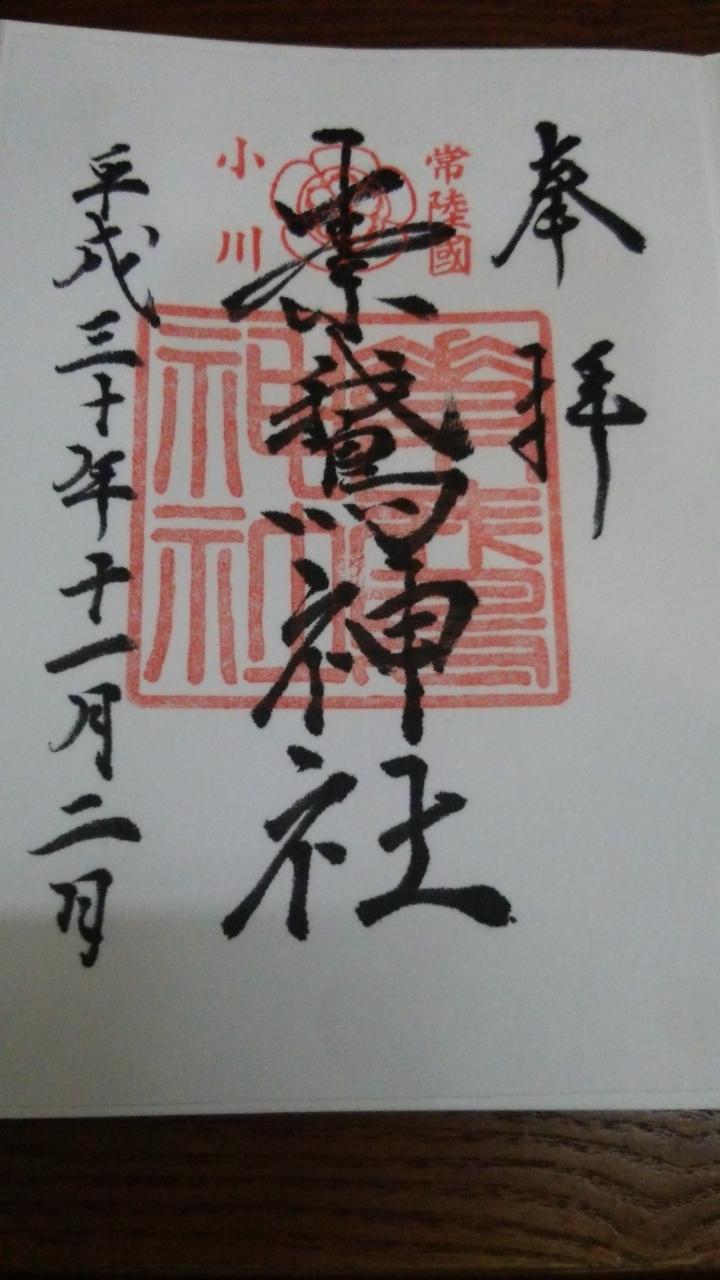 奉拝
常陸國
素鵞神社
小川
平成三十年十一月二日